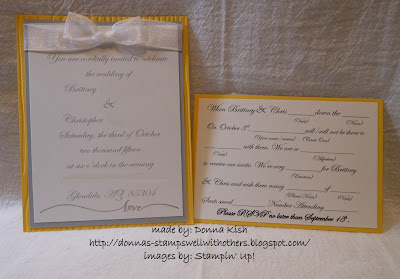 You are cordially invited to celebrate
the wedding of
Brittney
&
Christopher
Saturday, the third of October
two thousand fifteen
at six o'clock in the evening
Glendale, AZ 85304
love
When Brittney & Chris ______ down the ______
(Verb) (Noun)
On October 3rd, ______ will / will not be there to
(Circle One)
______ with them. We are so ______
(Verb) (Adjective)
to receive our invite. We're very ______ for Brittney
& Chris and wish them many ______ of ______
Seats saved ______ Number Attending ______
Please RSVP no later than September 18th.
made by: Donna Kish
http://donnas-stampswellwithothers.blogspot.com/
images by: Stampin' Up!